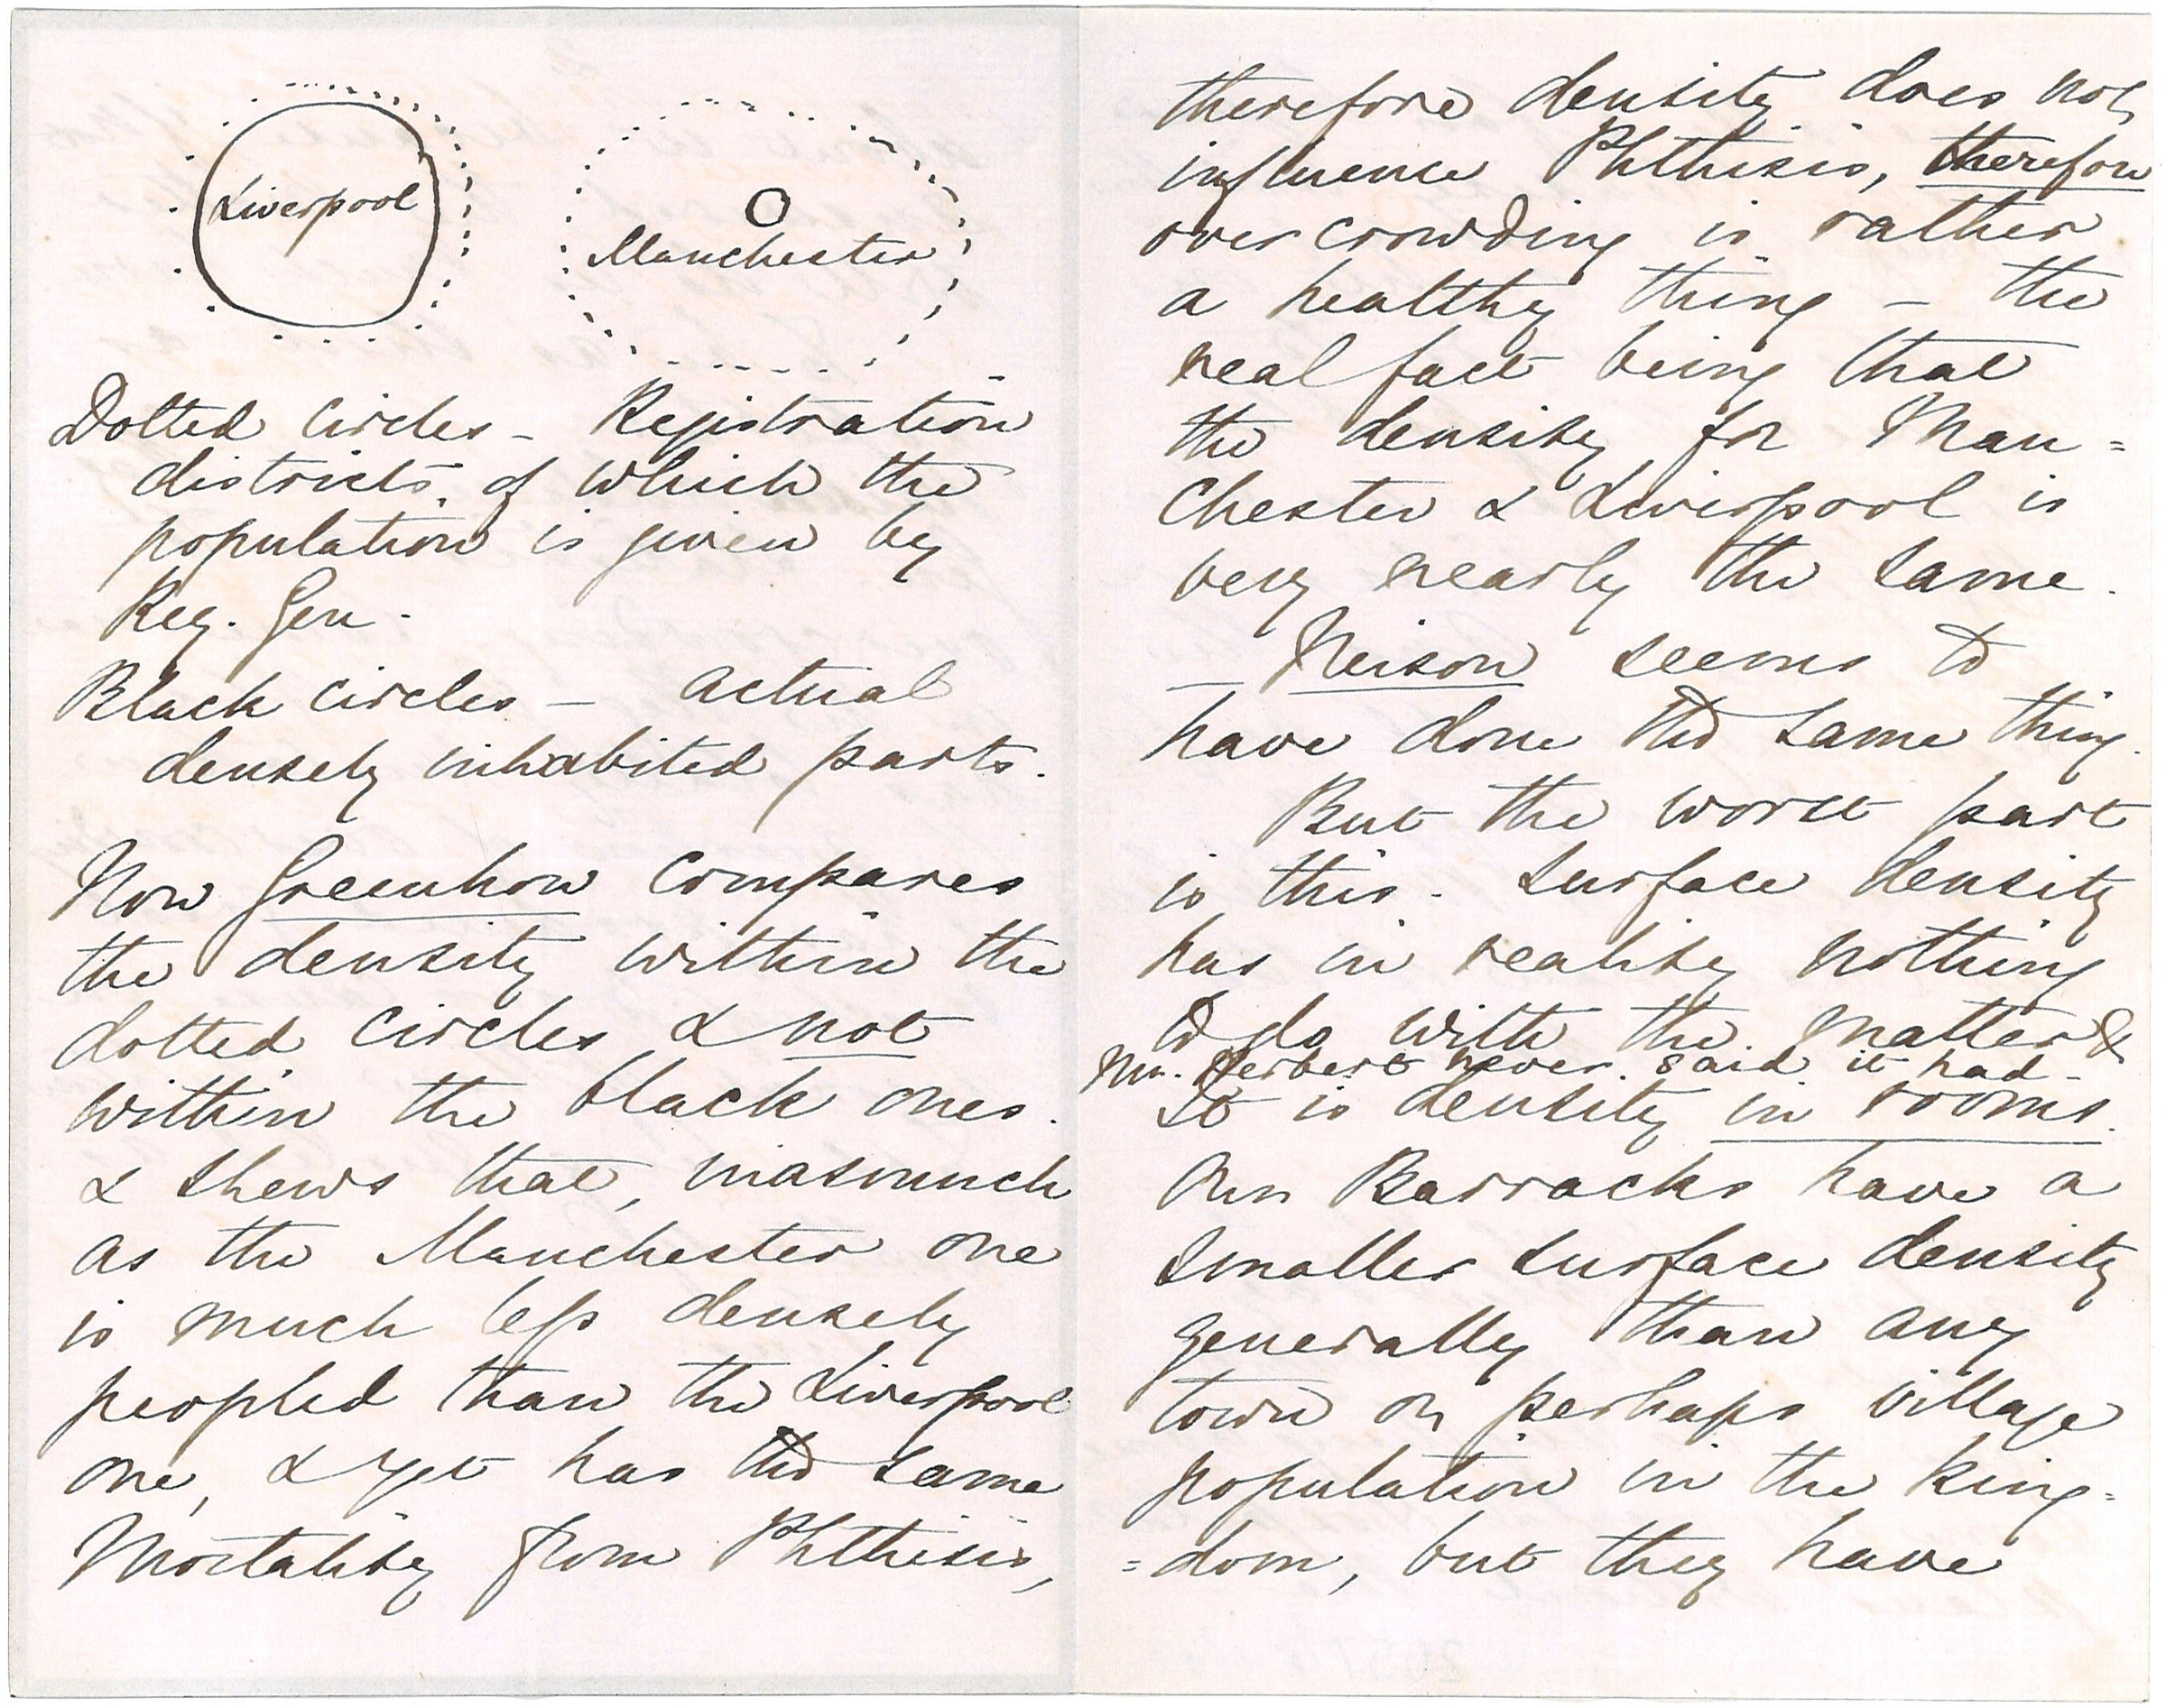 Liverpool
Manchester
Dotted Circles - Registration
districts, of which the
population is given by
Reg. Gen.
Black circles - actual
densely inhabited parts.
Now Greenhow compares
the density within the
dotted circles & not
within the black ones.
& shews that, inasmuch
as the Manchester one
is much less densely
peopled than the Liverpool
one, & yet has the same
Mortality from Phthisis,
therefore density does not
influence Phthisis, therefore
overcrowding is rather
a healthy thing - the
real fact being that
the density for Man=
chester & Liverpool is
very nearly the same.
_ Neison seems to
have done the same thing.
But the worst part
is this. Surface density
has in reality nothing
to do with the matter &
Mr. Herbert never said it had.
It is density in rooms.
Our Barracks have a
smaller surface density
generally than any
town or perhaps village
population in the king=
=dom, but they have